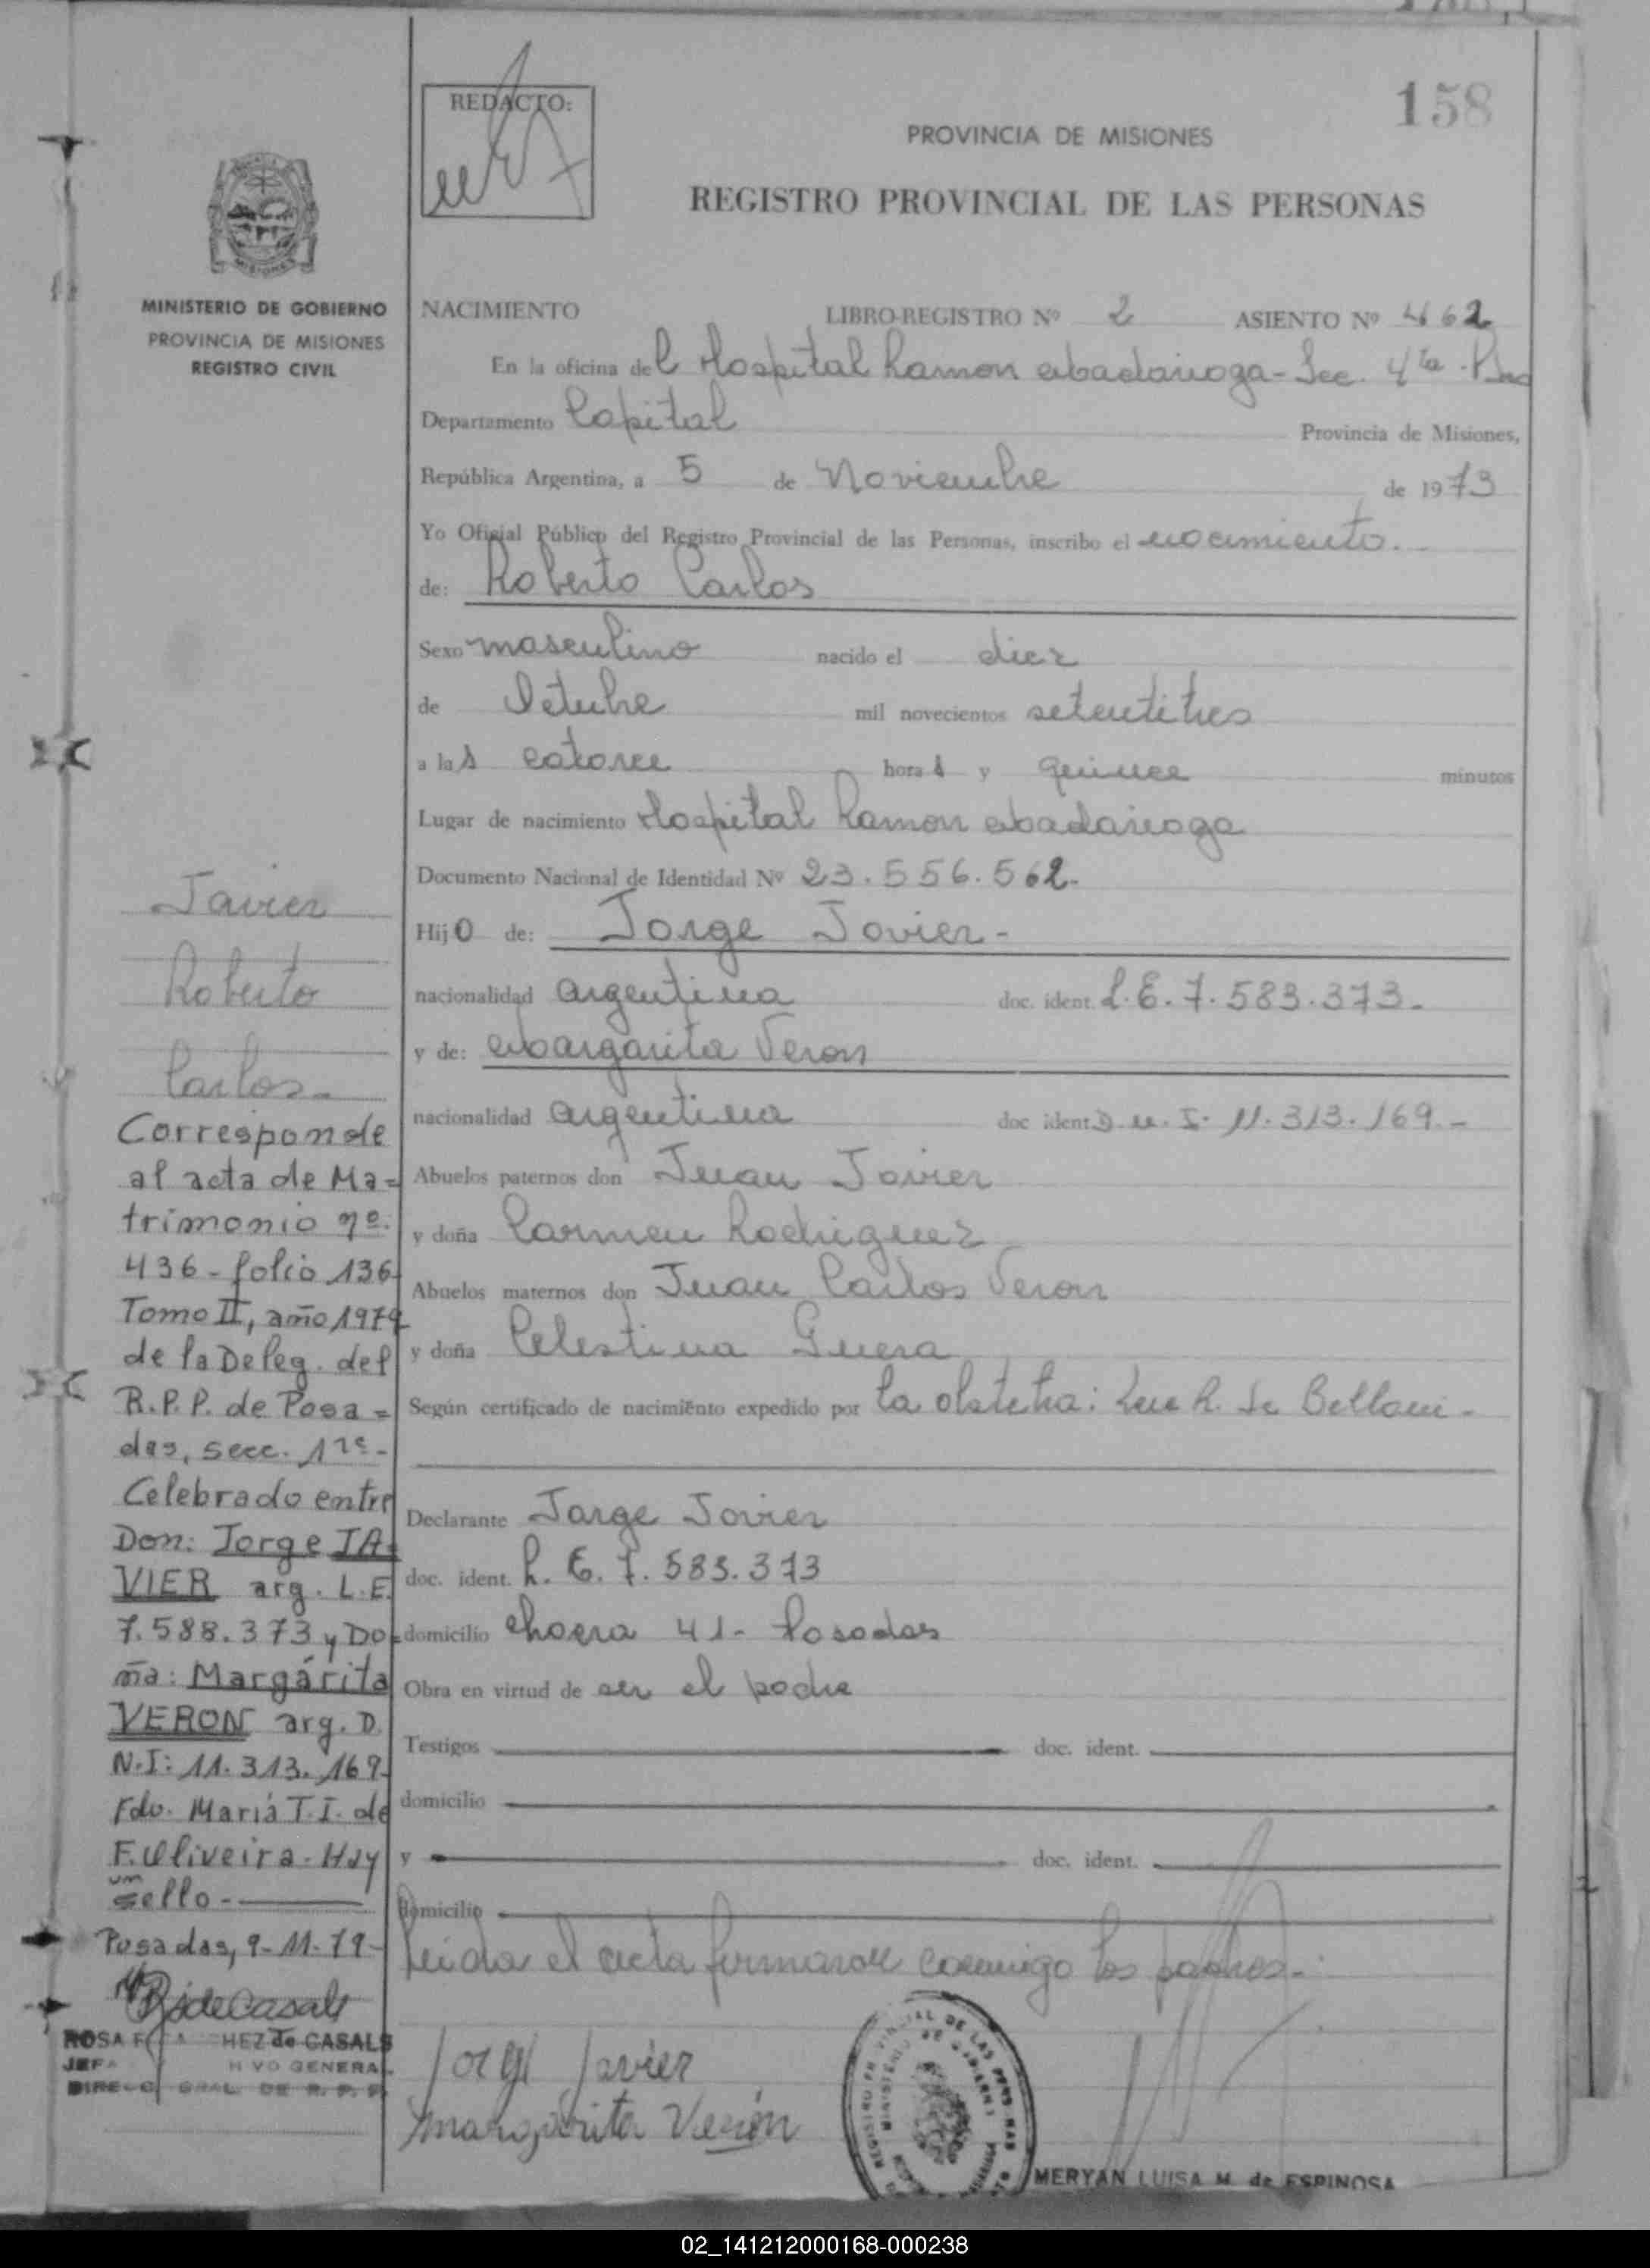 158
REDACTO:
PROVINCIA DE MISIONES
REGISTRO PROVINCIAL DE LAS PERSONAS
MISIONES
MINISTERIO DE GOBIERNO
PROVINCIA DE MISIONES
REGISTRO CIVIL
NACIMIENTO LIBRO-REGISTRO Nº 2 ASIENTO Nº 462
En la oficina del Hospital Ramon Madariaga - Sec. 4ta
Departamento Capital Provincia de Misiones,
República Argentina, a 5 de Noviembre de 1973
Yo Oficial Público del Registro Provincial de las Personas, inscribo el nacimiento.
de: Roberto Carlos
Sexo masculino nacido el diez
de Octubre mil novecientos setentitres
a las catorce horas y quince minutos
Lugar de nacimiento Hospital Ramon Madariaga
Documento Nacional de Identidad Nº 23.556.562.
Hijo de: Jorge Javier -
nacionalidad argentina doc. ident. L.E. 7.583.373.
y de: Margarita Veron
nacionalidad argentina doc ident D.N.I. 11.313.169.-
Abuelos paternos don Juan Javier
y doña Carmen Rodriguez
Abuelos maternos don Juan Carlos Veron
y doña Celestina
Según certificado de nacimiento expedido por la obstetra: R. de
Declarante Jorge Javier
doc. ident. L.E. 7.583.373
domicilio chacra 41 - Posadas
Obra en virtud de ser el padre
Testigos doc. ident.
domicilio
y doc. ident.
domicilio
Leida el acta firmaron conmigo los padres.-
Jorge Javier
Margarita Verón
MERYAN LUISA M. de ESPINOSA
Javier
Roberto
Carlos.-
Corresponde
al acta de Ma=
trimonio nº.
436 - folio 136
Tomo II, año 1979
de la Deleg. del
R.P.P. de Posa=
das, secc. 1ra.-
Celebrado entre
Don: Jorge JA=
VIER arg. L.E.
7.588.373 y Do=
ña: Margarita
VERON arg. D.
N.I: 11.313.169.
Fdo. María T.I. de
F. Oliveira - Hay
un
sello.-
Posadas, 9-11-79-
ROSA HEZ de CASALS
JEFA VO GENERAL
GRAL. DE R. P. P.
02_141212000168-000238